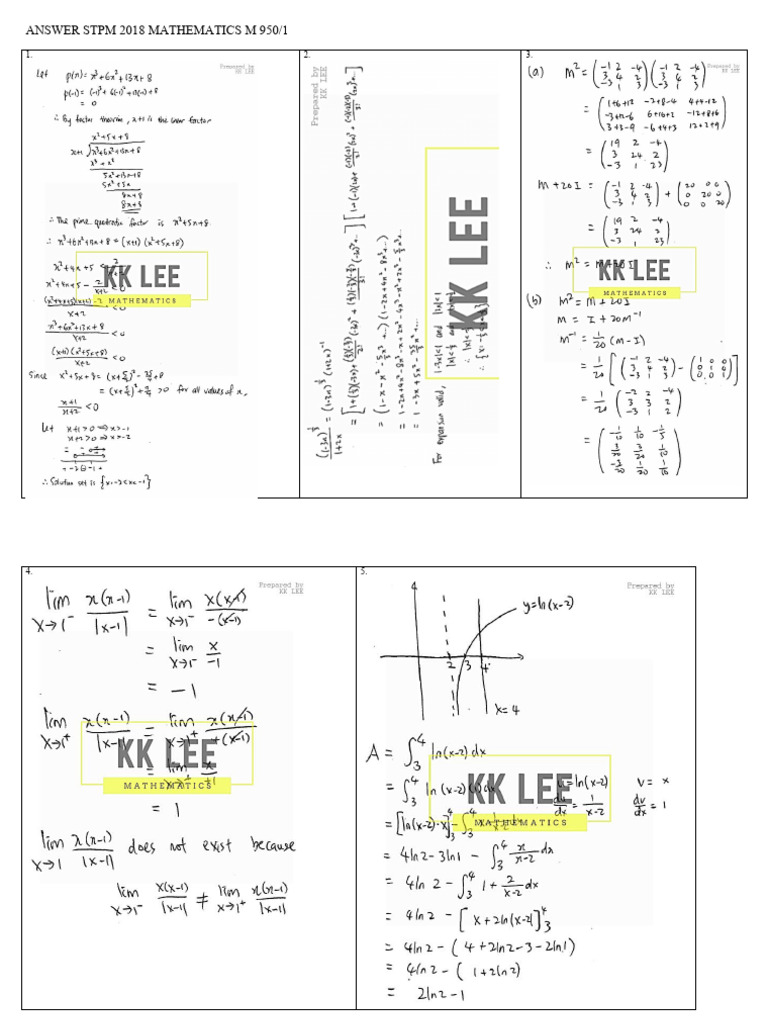 ANSWER STPM 2018 MATHEMATICS M 950/1
1.
Prepared by
KK LEE
Let p(x) = x³+6x²+13x+8
p(-1) = (-1)³+6(-1)²+13(-1)+8
= 0
∴ By factor theorem, x+1 is the linear factor
x²+5x+8
x+1 √x³+6x²+13x+8
x³+x²
5x²+13x+8
5x²+5x
8x+8
8x+8
∴ The prime quadratic factor is x²+5x+8.
∴ x³+6x²+13x+8 = (x+1)(x²+5x+8)
x²+4x+5 <
x²+4x+5 - 2/(x+2) < 0
((x²+4x+5)(x+2)-2)/(x+2) < 0
(x³+6x²+13x+8)/(x+2) < 0
((x+1)(x²+5x+8))/(x+2) < 0
Since x²+5x+8 =
> 0 for all values of x,
(x+1)/(x+2) < 0
Let x+1>0 ⇒ x>-1
x+2>0 ⇒ x>-2
∴ Solution set is {x: -2<x<-1}
KK LEE
MATHEMATICS
2.
Prepared by
KK LEE
(1-3x)^(1/3)/(1+2x) = (1-3x)^(1/3) (1+2x)^-1
= 1-3x+5x²-
For expansion valid,
|-3x|<1 and |2x|<1
KK LEE
3.
Prepared by
KK LEE
(a) M² = (-1 2 -4; 3 4 2; -3 1 3) (-1 2 -4; 3 4 2; -3 1 3)
= (1+6+12 -2+8-4 4+4-12; -3+12-6 6+16+2 -12+8+6; 3+3-9 -6+4+3 12+2+9)
= (19 2 -4; 3 24 2; -3 1 23)
M+20I = (-1 2 -4; 3 4 2; -3 1 3) + (20 0 0; 0 20 0; 0 0 20)
= (19 2 -4; 3 24 2; -3 1 23)
∴ M² = M+20I
(b) M² = M+20I
M = I+20M⁻¹
M⁻¹ = 1/20 (M-I)
= 1/20 [(-1 2 -4; 3 4 2; -3 1 3) - (1 0 0; 0 1 0; 0 0 1)]
= 1/20 (-2 2 -4; 3 3 2; -3 1 2)
= (-1/10 1/10 -1/5; 3/20 3/20 1/10; -3/20 1/20 1/10)
KK LEE
MATHEMATICS
4.
Prepared by
KK LEE
lim x→1⁻ x(x-1)/|x-1| = lim x→1⁻ x(x-1)/-(x-1)
= lim x→1⁻ x/-1
= -1
lim x→1⁺ x(x-1)/|x-1| = lim x→1⁺ x(x-1)/+(x-1)
= lim x→1⁺ x/+1
= 1
lim x→1 x(x-1)/|x-1| does not exist because
lim x→1⁻ x(x-1)/|x-1| ≠ lim x→1⁺ x(x-1)/|x-1|
KK LEE
MATHEMATICS
5.
Prepared by
KK LEE
y=ln(x-2)
2 3 4
x=4
A = ∫₃⁴ ln(x-2) dx
= ∫₃⁴ ln(x-2)(1) dx
u = ln(x-2) v = x
du/dx = 1/(x-2) dv/dx = 1
= [ln(x-2)·x]₃⁴ - ∫₃⁴
= 4ln2-3ln1 - ∫₃⁴ x/(x-2) dx
= 4ln2 - ∫₃⁴ 1+2/(x-2) dx
= 4ln2 - [x+2ln(x-2)]₃⁴
= 4ln2 - (4+2ln2-3-2ln1)
= 4ln2 - (1+2ln2)
= 2ln2-1
KK LEE
MATHEMATICS